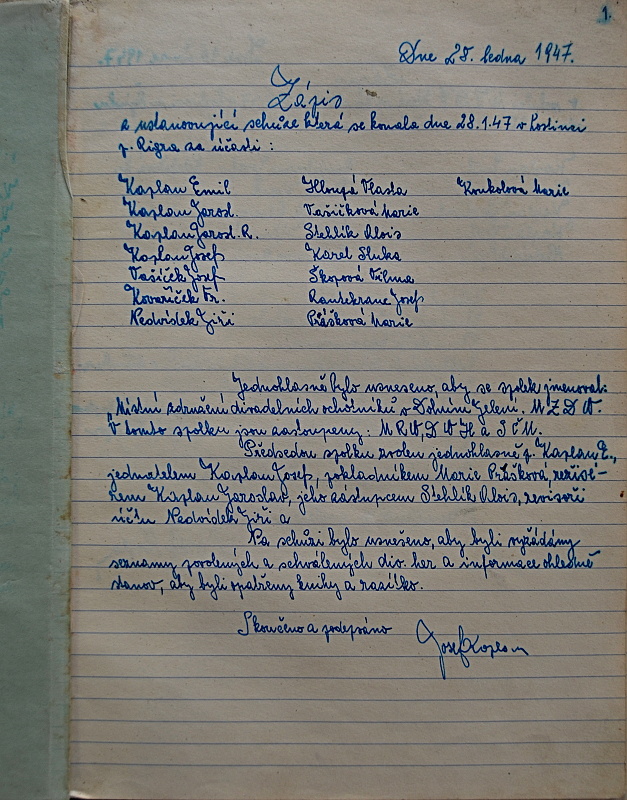 1.
Dne 28. ledna 1947.
Zápis
z ustanovující schůze která se konala dne 28.1.47 v hostinci
p. Rigra za účasti :
Kaplan Emil Hloupá Vlasta Koukolová Marie
Kaplan Jarosl. Vašíčková Marie
Kaplan Jarosl. R. Stehlík Alois
Kaplan Josef Karel Sluka
Vašíček Josef Škopová Vilma
Kovaříček Fr. Josef
Nedvídek Jiří Průšková Marie
Jednohlasně bylo usneseno, aby se spolek jmenoval:
„Místní združení divadelních ochotníků v Dolním Jelení. M Z D O.
V tomto spolku jsou zastoupeny: a S Č M.
Předsedou spolku zvolen jednohlasně p. Kaplan E.,
jednatelem Kaplan Josef, pokladníkem Marie Průšková, režisé-
rem Kaplan Jaroslav, jeho zástupcem Stehlík Alois, revisoři
účtu Nedvídek Jiří a
Na schůzi bylo usneseno, aby byli vyžádány
seznamy povolených a schválených div. her a informace ohledně
stanov, aby byli opatřeny knihy a razítko.
Skončeno a podepsáno
Josef Kaplan